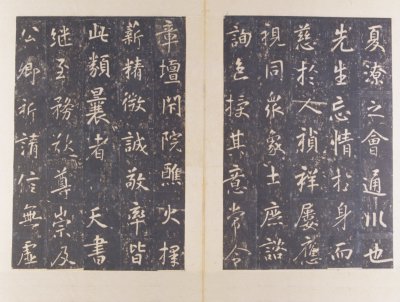 夏潦之會通川也
先生忘情於身而
慈於人禎祥屢應
視同衆象士庶諮
詢色授其意常令
章壇閑院醮火擇
薪精微誠敬率皆
此類曩者　天書
繼至務欲尊崇及
公卿祈請信無虛